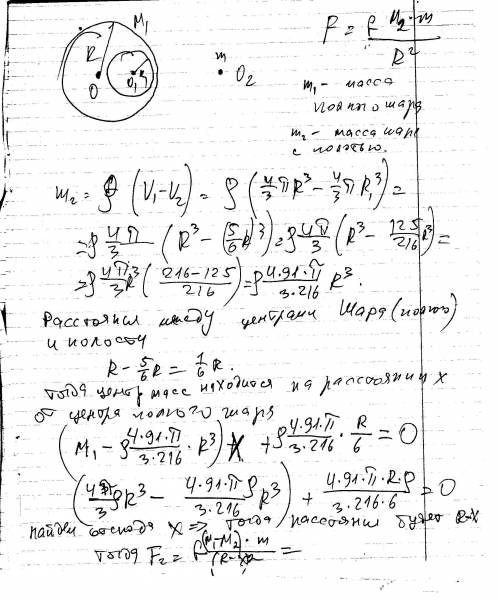 M₁
R
O
O₁ R₁
m
O₂
F = ρ M₂·m / R²
m₁ - масса
полного шара
m₂ - масса шара
с полостью.
m₂ = ρ (V₁-V₂) = ρ (4/3 πR³ - 4/3 πR₁³) =
= ρ 4π/3 (R³ - (5/6 R)³) = ρ 4π/3 (R³ - 125/216 R³) =
= ρ 4π/3 R³ (216-125 / 216) = ρ 4·91·π / 3·216 R³.
Расстояния между центрами шара (полого)
и полости
R - 5/6 R = 1/6 R.
тогда центр масс находится на расстоянии x
от центра полного шара
(M₁ - ρ 4·91·π / 3·216 · R³) X + ρ 4·91·π / 3·216 · R/6 = 0
(4π/3 ρR³ - 4·91·π / 3·216 ρ R³) + 4·91·π·R·ρ / 3·216·6 = 0
найдем отсюда x => тогда расстояния будет R-X
тогда F₂ = ρ (M₁-M₂)·m / (R-x)² =